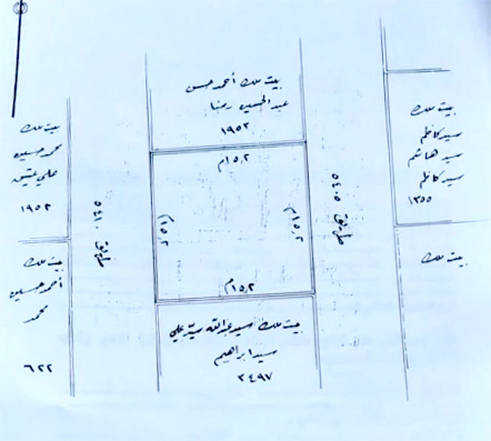 بيت ملك أحمد حسن
عبدالحسين رضا
١٩٥٢
بيت ملك
محمد حسين
علي عتيق
١٩٥٢
طريق ٥٤١٠
بيت ملك
أحمد حسين
محمد
٦٢٢
١٥,٢م
١٥,٢م
١٥,٢م
١٥,٢م
طريق ٥٤٠٥
بيت ملك
سيد كاظم
سيد هاشم
سيد كاظم
١٣٥٥
بيت ملك
بيت ملك سيد عبدالله سيد علي
سيد ابراهيم
٢٤٩٧